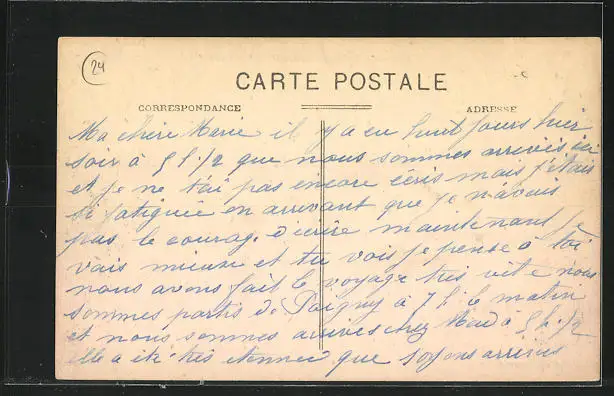 24
CARTE POSTALE
CORRESPONDANCE
ADRESSE
Ma chère Marie il y a eu huit jours hier
soir à 5 h 1/2 que nous sommes arrivés ici
et je ne t'ai pas encore écris mais j'étais
si fatiguée en arrivant que je n'avais
pas le courage d'écrire maintenant
vais mieux et tu vois je pense à toi
nous avons fait le voyage très vite nous
sommes partis de à 7 h le matin
et nous sommes arrivés chez à 5 h 1/2
elle a été très étonnée que soyons arrivés